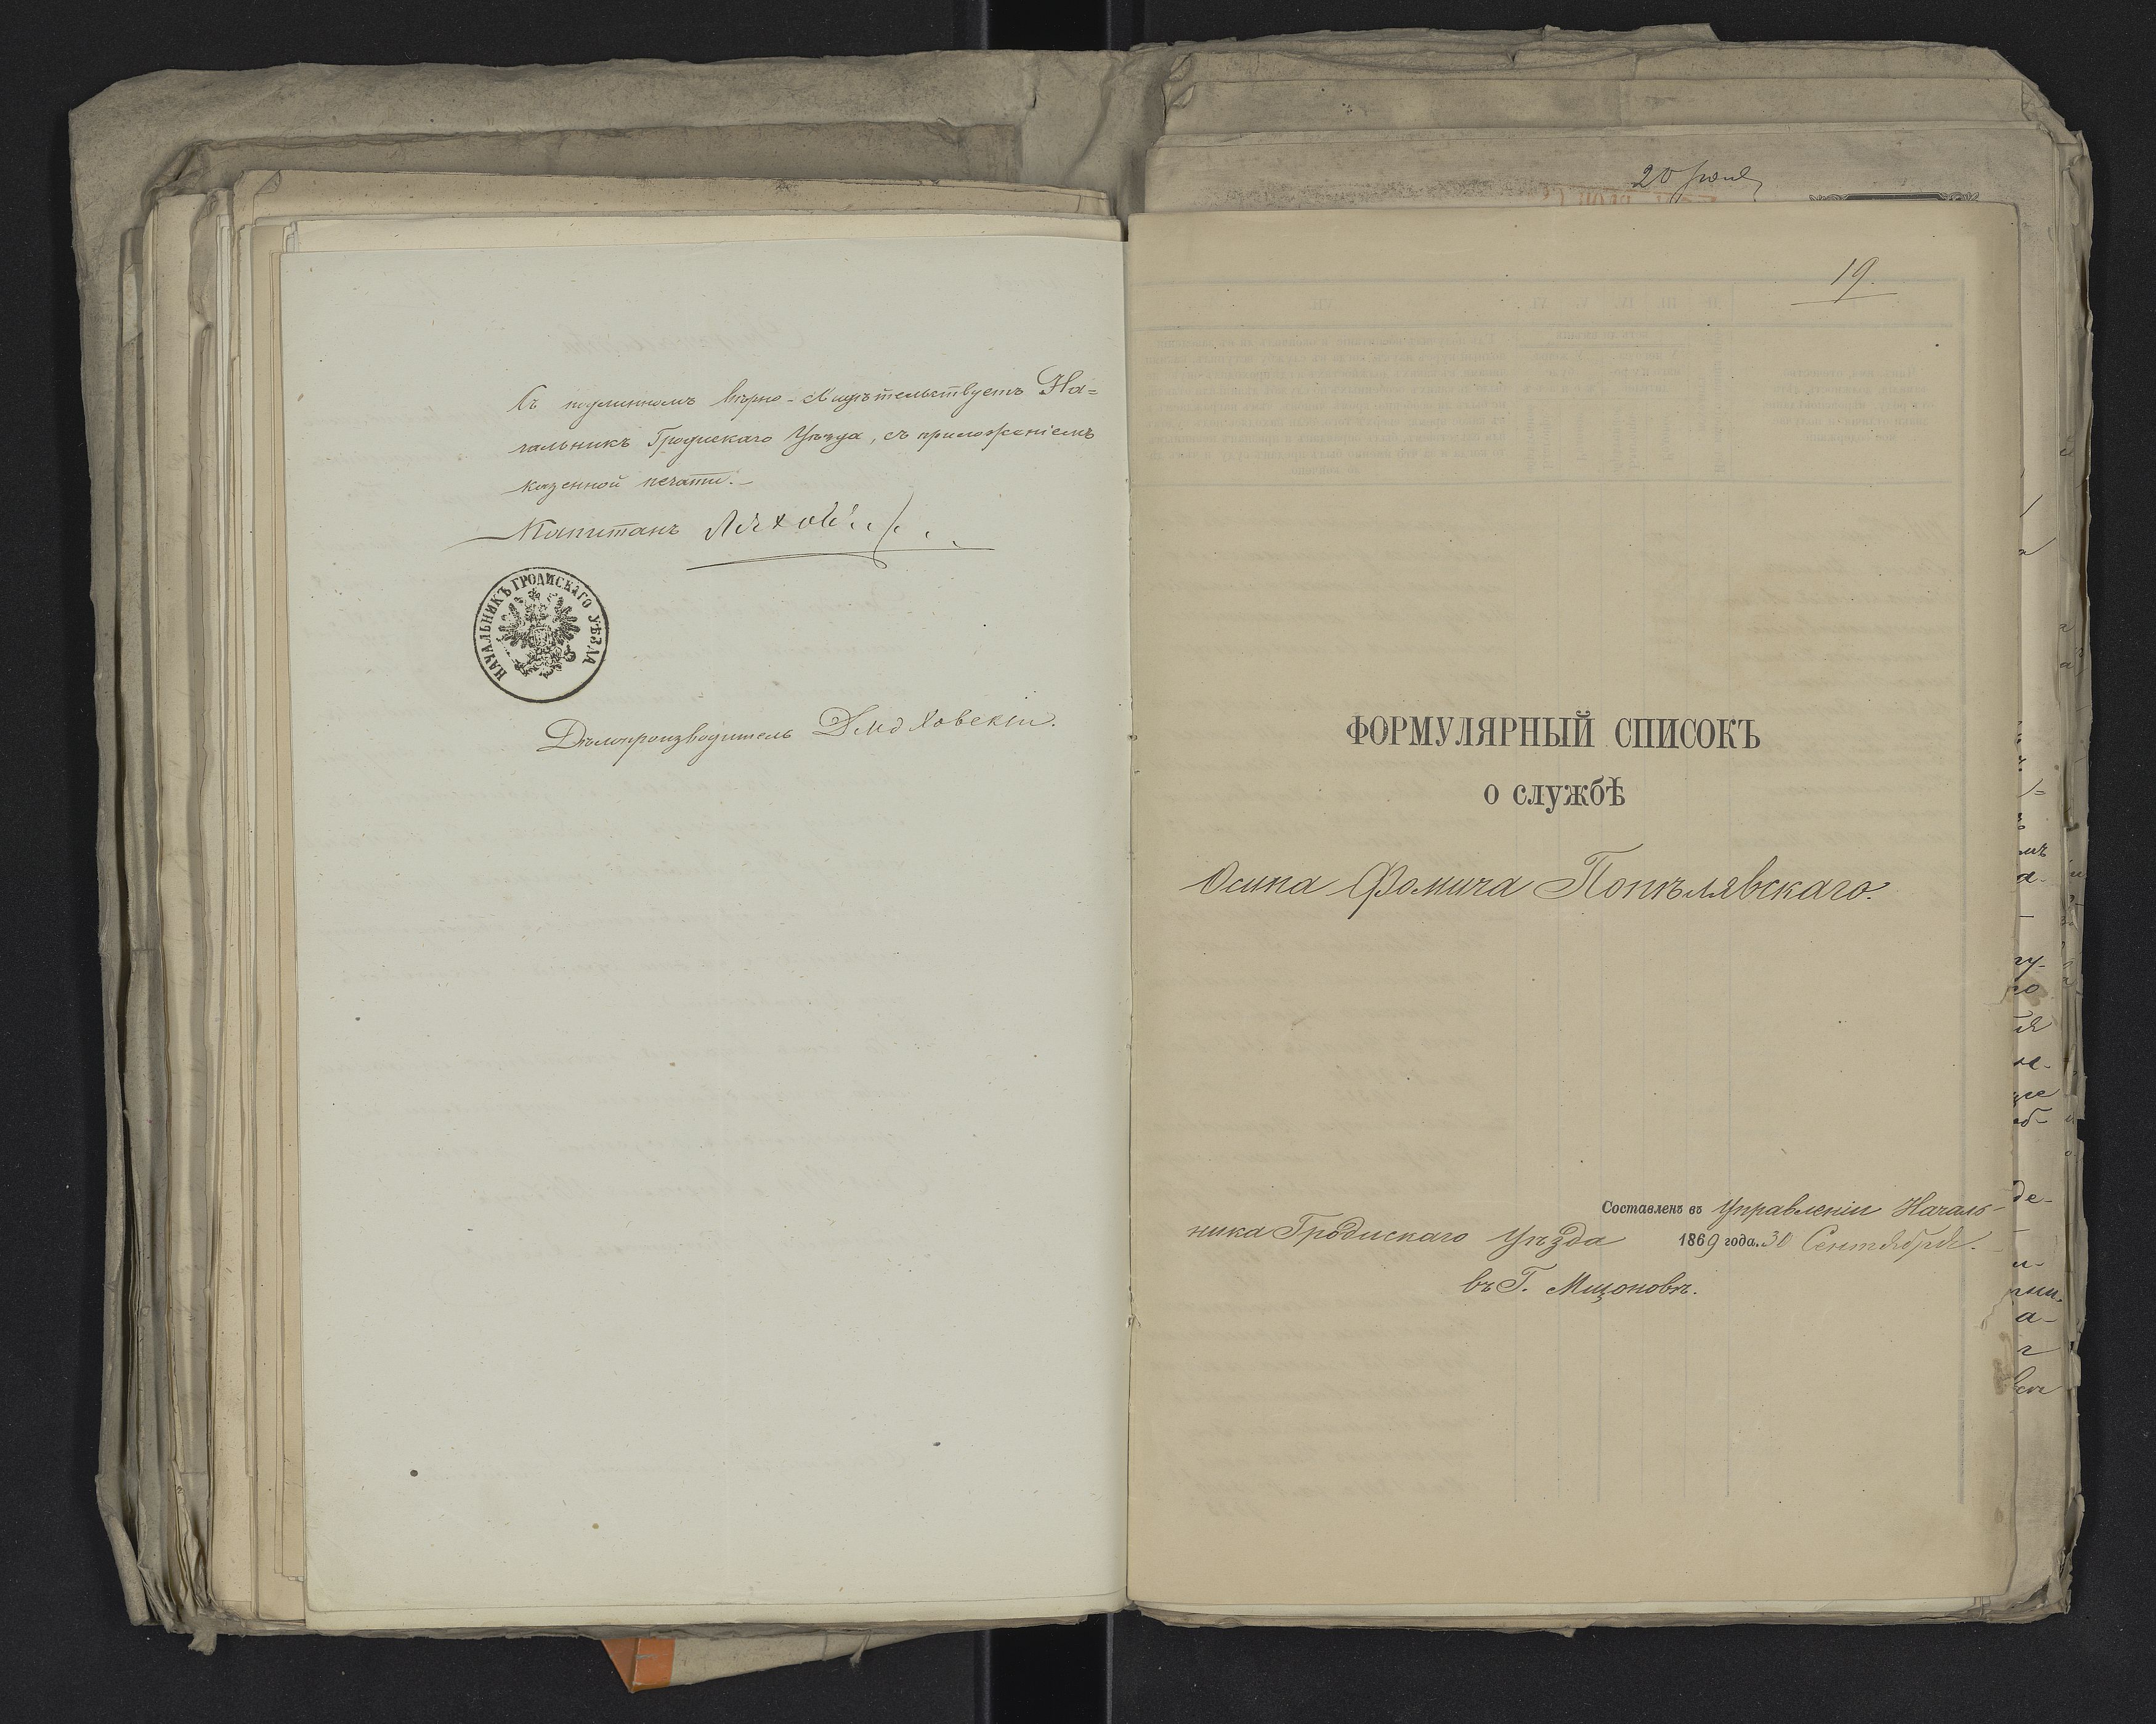 Съ подлиннымъ вѣрно - свидѣтельствуетъ На=
чальникъ Гродискаго Уѣзда, съ приложеніемъ
казенной печати. -
Капитанъ
НАЧАЛЬНИКЪ ГРОДИСКАГО УѢЗДА
Дѣлопроизводитель
20
19.
ФОРМУЛЯРНЫЙ СПИСОКЪ
о службѣ
Осипа Фомича Попѣлявскаго.
Составленъ въ Управленіи Началь-
ника Гродискаго Уѣзда 1869 года. 30 Сентября.
въ Г. Мщоновѣ.